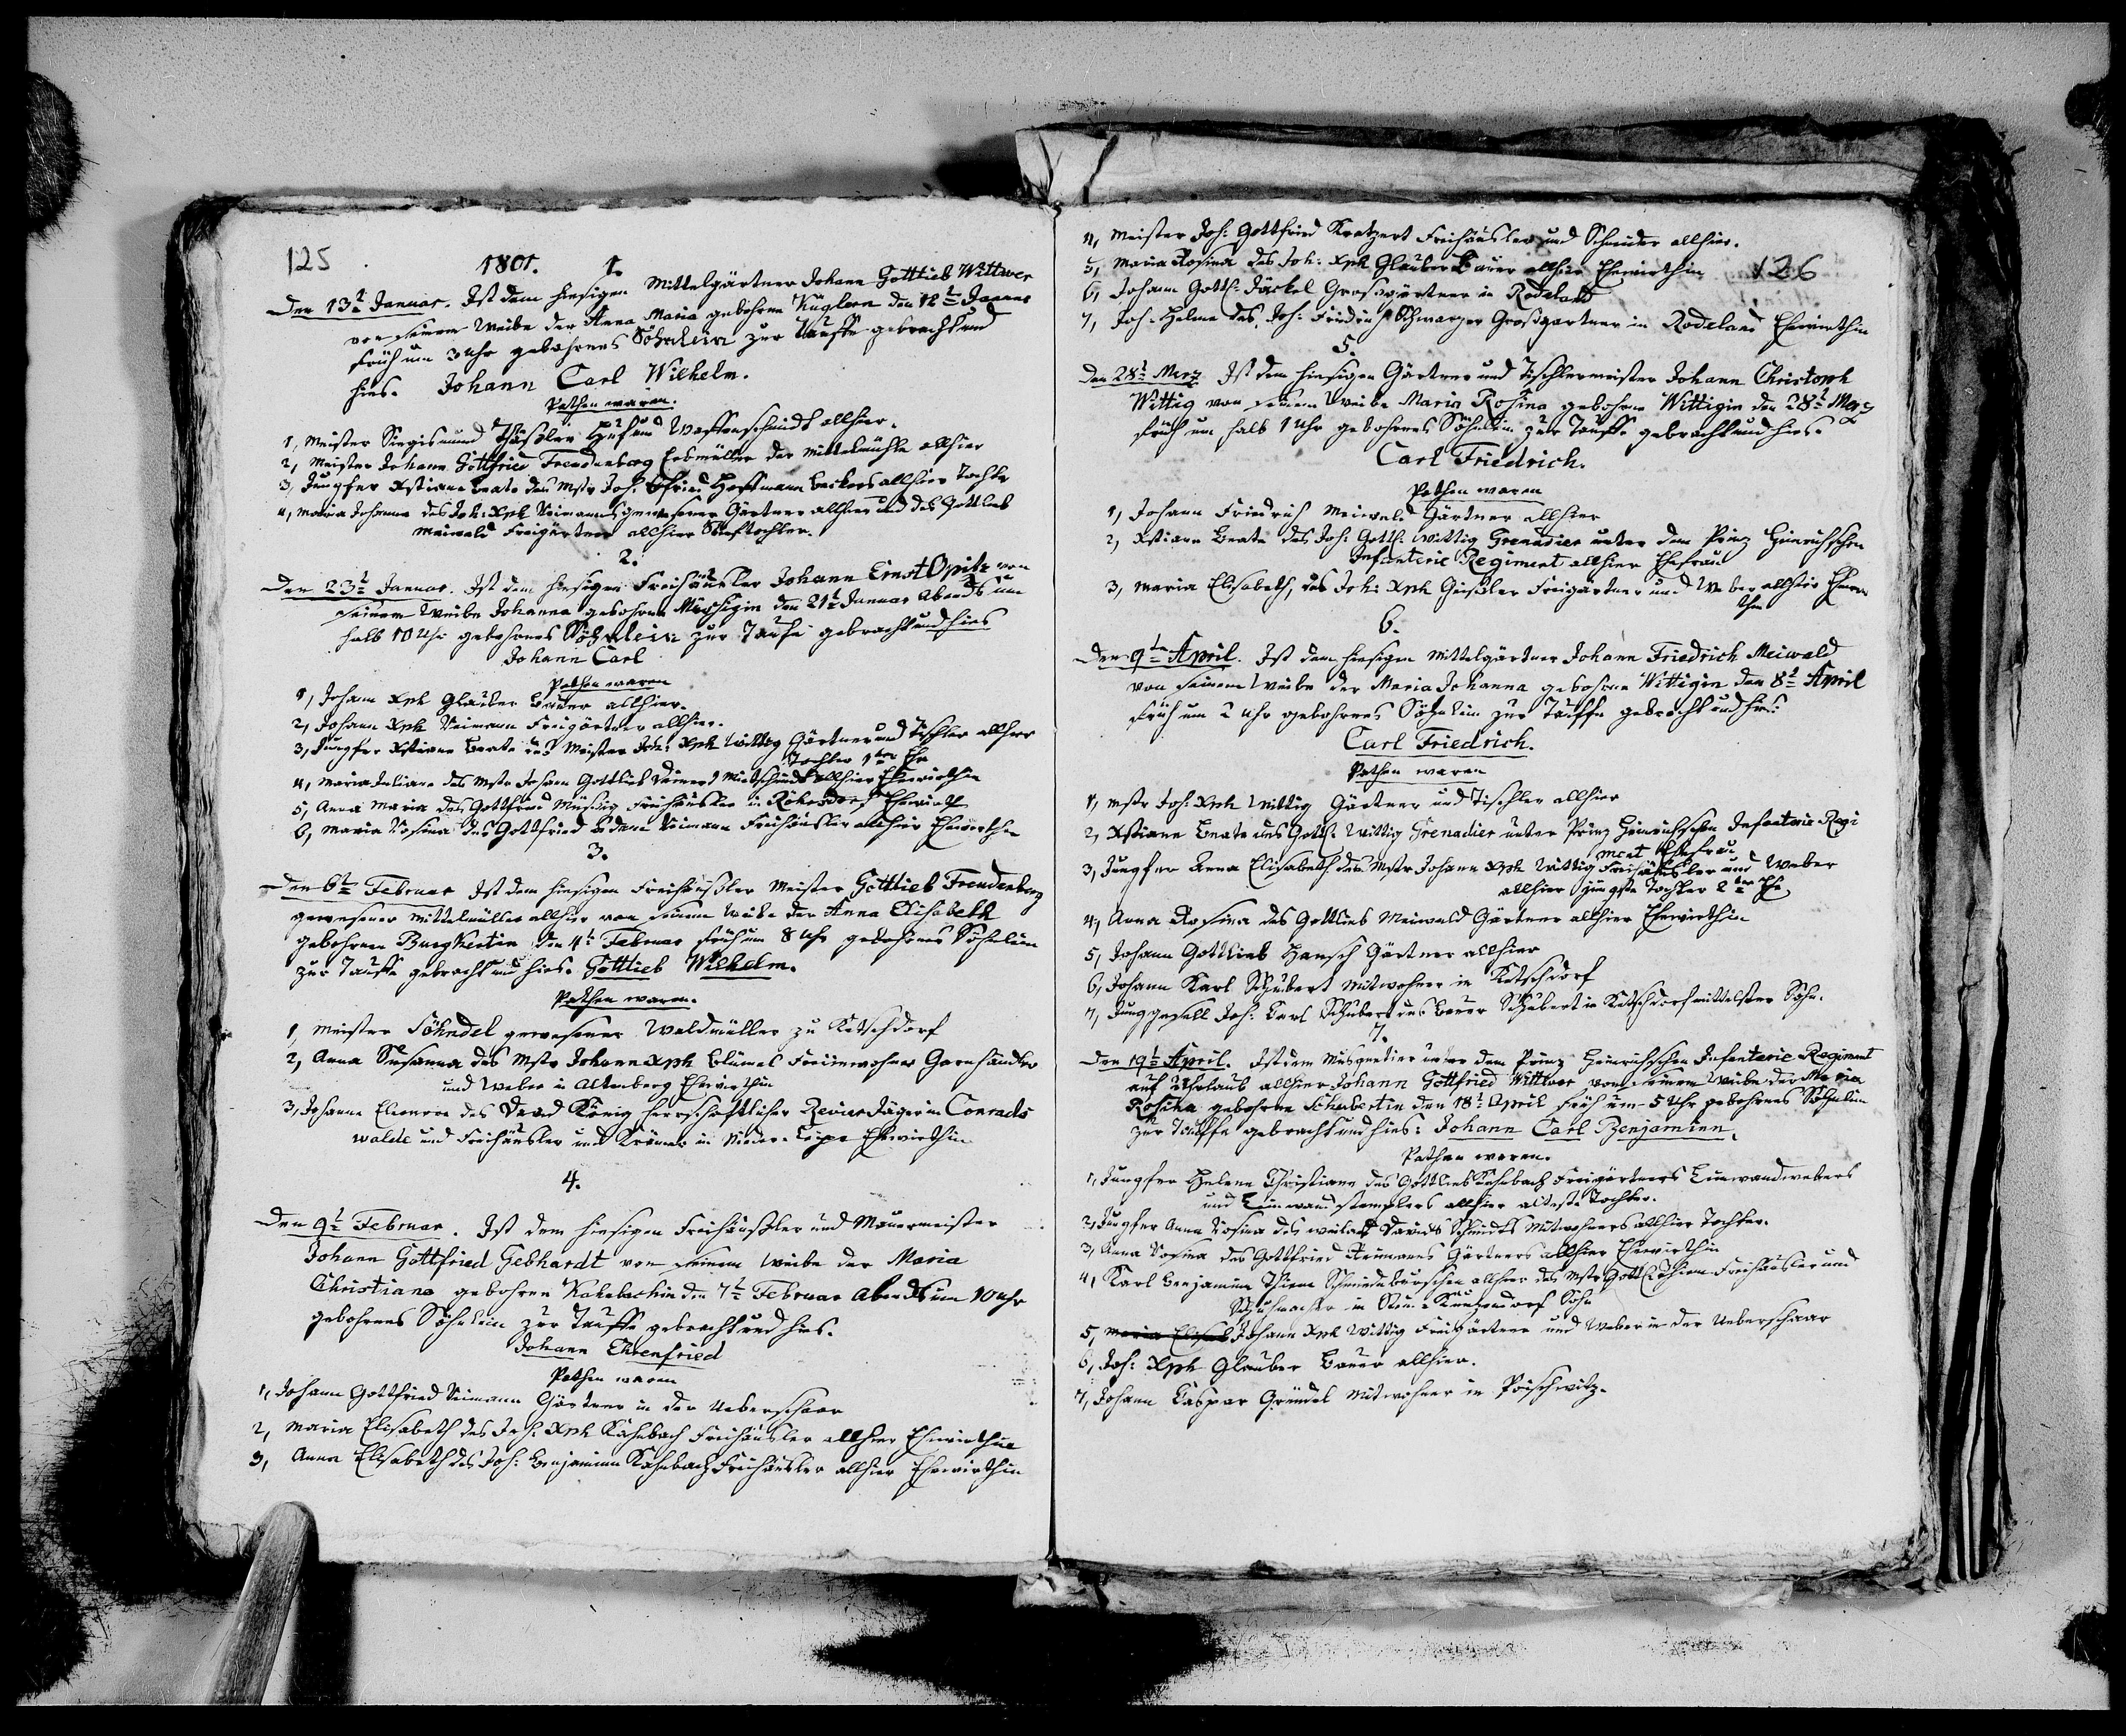 125
1801. 1.
Den 13t Januar. Ist dem hiesigen Mittelgärtner Johann Gottlieb Wittwer
von seinem Weibe der Anna Maria gebohrne Küglern den 12t Januar
früh um 3 Uhr gebohrnes Söhnlein zur Tauffe gebracht und
hies. Johann Carl Wilhelm.
Pathen waren.
1, Meister Siegismund Huf und Waffenschmidt allhier.
2, Meister Johann Gottfried Freudenberg Erbmüller der Mittelmühle allhier
3, Jungfer Xstiane Beate des Mstr Joh. Gfried Hoffmann Beckers allhier Tochter
4, Maria Johanna des Joh: Xph Neimanns gewesener Gärtner allhier und des Gottlieb
Meiwald Freigärtner allhier Stieftochter.
2.
Den 23t Januar. Ist dem hiesigen Freihäusler Johann Ernst Opitz von
seinem Weibe Johanna gebohrne Müssigin den 21t Januar Abends um
halb 10 Uhr gebohrnes Söhnlein zur Taufe gebracht und hies
Johann Carl
Pathen waren
1, Johann Xph Glauber Bauer allhier.
2, Johann Xph Neimann Freigärtner allhier.
3, Jungfer Xstiane Beate des Meister Joh: Xph Wittig Gärtner und Tischler allhier
Tochter 1ter Ehe
4, Maria Juliane des Mstr Johann Gottlieb allhier Ehewirthin
5, Anna Maria des Gottfried Müssig Freihäusler in Röhrsdorf Ehewirth
6, Maria Rosina des Gottfried Neimann Freihäusler allhier Ehewirthin
3.
Den 6te Februar Ist dem hiesigen Freihäußler Meister Gottlieb Freudenberg
gewesener Mittelmüller allhier von seinem Weibe der Anna Elisabeth
gebohrnen Burghertin den 4t Februar früh um 8 Uhr gebohrnes Söhnlein
zur Tauffe gebracht und hies. Gottlieb Wilhelm.
Pathen waren.
1, Meister Söhndel gewesener Waldmüller zu Ketschdorf
2, Anna Susanna des Mstr Johann Xph Blümel Freieinwohner Garnhändler
und Weber in Altenberg Ehewirthin
3, Johanna Eleonore des David König herrschaftlicher Revier Jäger in Conrads
walde und Freihäusler und Krämer in Nieder-Leipe Ehewirthin
4.
Den 9t Februar. Ist dem hiesigen Freihäußler und Mauermeister
Johann Gottfried Gebhardt von seinem Weibe der Maria
Christiana gebohrne Kahebachin den 7t Februar Abends um 10 Uhr
gebohrnes Söhnlein zur Tauffe gebracht und hies.
Johann Ehrenfried
Pathen waren
1, Johann Gottfried Neimann Gärtner in der Ueberschaar
2, Maria Elisabeth des Joh: Xph Kahebach Freihäusler allhier Ehewirthin
3, Anna Elisabeth des Joh: Benjamin Kahebach Freihäusler allhier Ehewirthin
126
4, Meister Joh: Gottfried Kretzert Freihäusler und Schneider allhier.
5, Maria Rosina des Joh: Xph Glauber Bauer allhier Ehewirthin
6, Johann Gottl: Jäckel Grosgärtner in Rodeland
7, Joh: Helena des Joh: Friedrich Schwarzer Grosgärtner in Rodeland Ehewirthin
5.
Den 28t Merz Ist dem hiesigen Gärtner und Tischlermeister Johann Christoph
Wittig von seinem Weibe Maria Rosina gebohrne Wittigin den 28t Merz
früh um halb 1 Uhr gebohrnes Söhnlein zur Tauffe gebracht und hies.
Carl Friedrich.
Pathen waren
1, Johann Friedrich Meiwald Gärtner allhier
2, Xstiane Beate des Joh: Gottl: Wittig Grenadier unter dem Prinz Heinrichschen
Infanterie Regiment allhier Ehefrau
3, Maria Elisabeth, des Joh: Xph Geisler Freigärtner und Weber allhier Ehewir
thin
6.
Den 9te April. Ist dem hiesigen Mittelgärtner Johann Friedrich Meiwald
von seinem Weibe der Maria Johanna gebohrne Wittigin den 8t April
früh um 2 Uhr gebohrnes Söhnlein zur Tauffe gebracht und hies:
Carl Friedrich.
Pathen waren
1, Mstr Joh: Xph Wittig Gärtner und Tischler allhier
2, Xstiane Beate des Gottl: Wittig Grenadier unter Prinz Heinrichschen Infanterie Regi
ment Ehefrau
3, Jungfer Anna Elisabeth des Mstr Johann Xph Wittig Freihäusler und Weber
allhier jüngste Tochter 2ter Ehe
4, Anna Rosina des Gottlieb Meiwald Gärtner allhier Ehewirthin
5, Johann Gottlieb Hansch Gärtner allhier
6, Johann Karl Schubert Mitwohner in Ketschdorf
7, Junggesell Joh: Carl Schubert des Bauer Schubert in Ketschdorf mittelster Sohn.
7.
Den 19t April. Ist dem Musquetier unter dem Prinz Heinrichschen Infanterie Regiment
auf Uhrlaub allhier Johann Gottfried Wittwer von seinem Weibe der Maria
Rosina gebohrne Schubertin den 18t April früh um 5 Uhr gebohrnes Söhnlein
zur Tauffe gebracht und hies: Johann Carl Benjamin.
Pathen waren.
1, Jungfer Helena Christiane des Gottlieb Kahebach Freigärtners Leinwandwebers
und Leinwandstemplers allhier älteste Tochter.
2, Jungfer Anna Rosina des weiland Davids Schmidts Mitwohners allhier Tochter.
3, Anna Rosina des Gottfried Neimanns Gärtners allhier Ehewirthin
4, Karl Benjamin Thiem allhier des Mstr Gottl: Thiem Freihäusler und
Schuhmacher in Kuntzendorf Sohn
5, Maria Elisab Johann Xph Wittig Freigärtner und Weber in der Ueberschaar
6, Joh: Xph Glauber Bauer allhier.
7, Johann Caspar Gründel Mitwohner in Poischwitz.